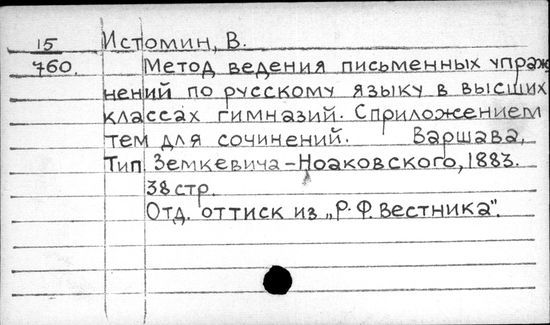 15 Истомин, В.
760. Метод ведения письменных упраж
нений по русскому языку в высших
классах гимназий. С приложением
тем для сочинений. Варшава,
Тип. Земкевича-Ноаковского, 1883.
38 стр.
Отд. оттиск из „Р. Ф. Вестника".